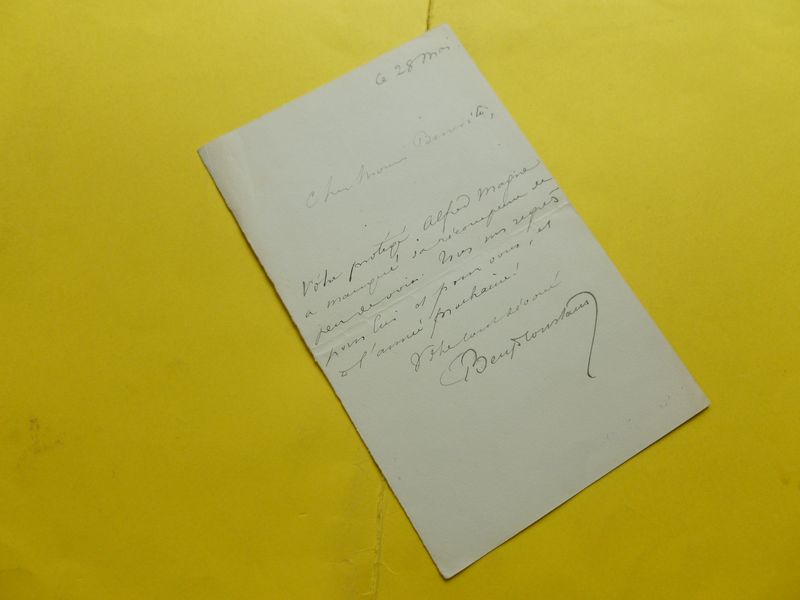 Le 28 Mai
Cher Monsieur
Votre protégé Alfred Magne
a manqué sa récompense de
peu de voix. Tous mes regrets
pour lui et pour vous, et
à l'année prochaine!
Votre tout dévoué
Benj Constant